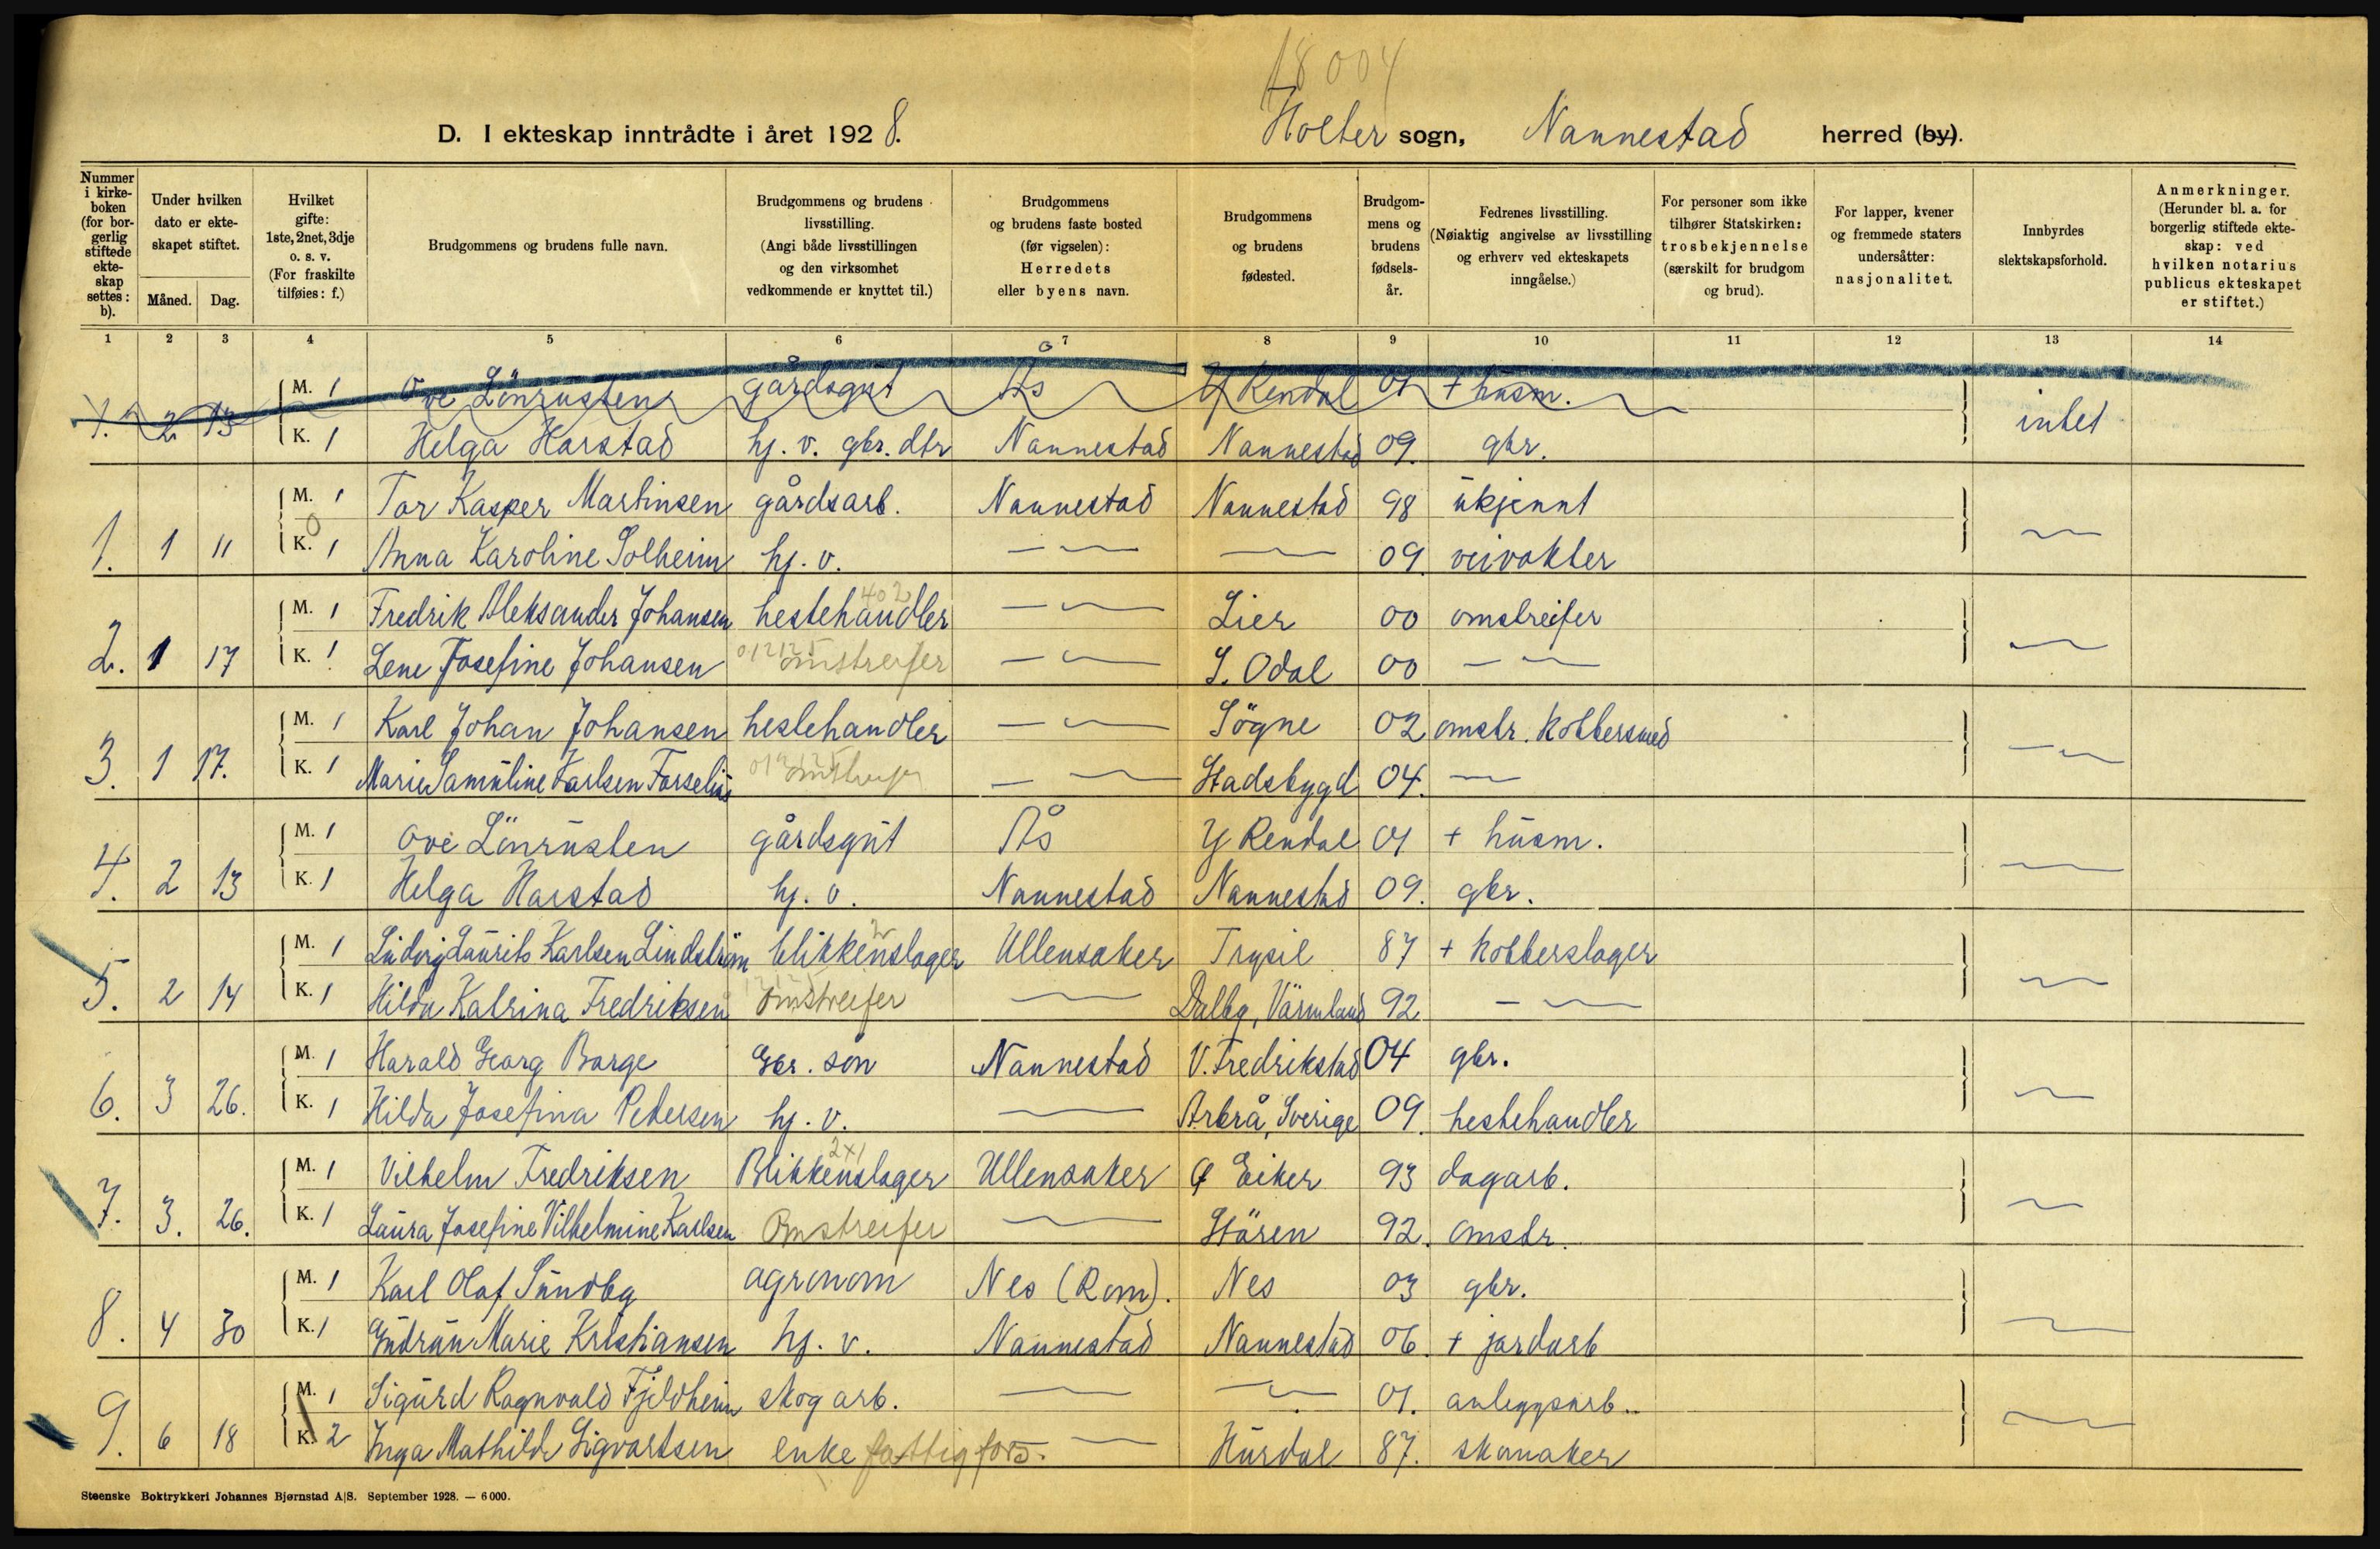 18004
D. I ekteskap inntrådte i året 1928. Holter sogn, Nannestad herred (by).
Nummer i kirkeboken (for borgerlig stiftede ekteskap settes: b).
Under hvilken dato er ekteskapet stiftet.
Måned. Dag.
Hvilket gifte: 1ste, 2net, 3dje o. s. v. (For fraskilte tilføies: f.)
Brudgommens og brudens fulle navn.
Brudgommens og brudens livsstilling. (Angi både livsstillingen og den virksomhet vedkommende er knyttet til.)
Brudgommens og brudens faste bosted (før vigselen): Herredets eller byens navn.
Brudgommens og brudens fødested.
Brudgommens og brudens fødselsår.
Fedrenes livsstilling. (Nøiaktig angivelse av livsstilling og erhverv ved ekteskapets inngåelse.)
For personer som ikke tilhører Statskirken: trosbekjennelse (særskilt for brudgom og brud).
For lapper, kvener og fremmede staters undersåtter: nasjonalitet.
Innbyrdes slektskapsforhold.
Anmerkninger. (Herunder bl. a. for borgerlig stiftede ekteskap: ved hvilken notarius publicus ekteskapet er stiftet.)
1 2 3 4 5 6 7 8 9 10 11 12 13 14
M. 1 Ove Lönrusten gårdsgut Ås Y Rendal 01 + husm.
1. 2 13 K. 1 Helga Harstad hj. v. gbr. dtr Nannestad Nannestad 09. gbr. intet
M. 1 Tor Kasper Martinsen gårdsarb. Nannestad Nannestad 98 ukjennt
1. 1 11 K. 1 Anna Karoline Solheim hj. v. — — 09. veivokter —
M. 1 Fredrik Aleksander Johansen hestehandler 402 — Lier 00 omstreifer
2. 1 17 K. 1 Lene Josefine Johansen omstreifer — S. Odal 00 — —
M. 1 Karl Johan Johansen hestehandler — Sögne 02 omstr. kobbersmed
3. 1 17. K. 1 Marie Samuline Karlsen Forselius omstreifer — Stadsbygd 04. — —
M. 1 Ove Lönrusten gårdsgut Ås Y Rendal 01 + husm.
4. 2 13 K. 1 Helga Harstad hj. v. Nannestad Nannestad 09. gbr. —
M. 1 Ludvig Laurits Karlsen Lindström blikkenslager Ullensaker Trysil 87 + kobberslager
5. 2 14 K. 1 Hilda Katrina Fredriksen omstreifer — Dalby, Värmland 92. — —
M. 1 Harald Georg Borge Gbr. sön Nannestad V. Fredrikstad 04 gbr.
6. 3 26. K. 1 Hilda Josefina Petersen hj. v. — Arbrå, Sverige 09. hestehandler —
M. 1 Vilhelm Fredriksen Blikkenslager 2x1 Ullensaker Ø Eiker 93 dagarb.
7. 3. 26. K. 1 Laura Josefine Vilhelmine Karlsen Omstreifer — Stören 92. omstr. —
M. 1 Karl Olaf Sundby agronom Nes (Rom). Nes 03 gbr.
8. 4 30 K. 1 Gudrun Marie Kristiansen hj. v. Nannestad Nannestad 06. + jordarb —
M. 1 Sigurd Ragnvald Fjeldheim skogarb. — — 01. anleggsarb.
9. 6 18 K. 2 Inga Mathilde Sigvartsen enke fattigfors. — Hurdal 87. skomaker —
Steenske Boktrykkeri Johannes Bjørnstad A|S. September 1928. — 6000.